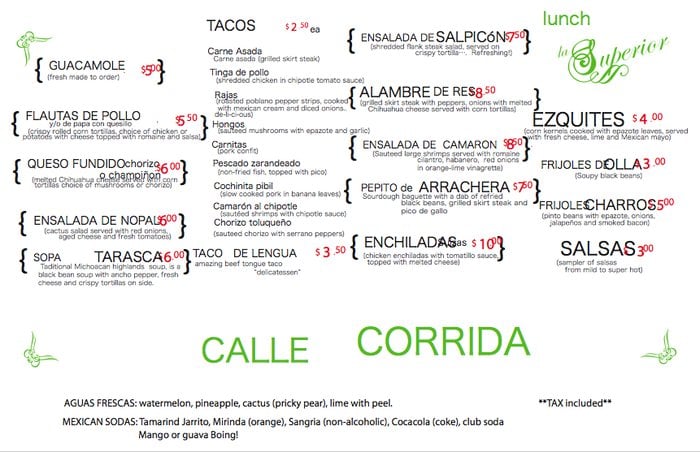 lunch
la Superior
GUACAMOLE $5.00
(fresh made to order)
FLAUTAS DE POLLO $5.50
y/o de papa con quesillo
(crispy rolled corn tortillas, choice of chicken or
potatoes with cheese topped with romaine and salsa)
QUESO FUNDIDO chorizo $6.00
o champiñon
(melted Chihuahua cheese served with corn
tortillas choice of mushrooms or chorizo)
ENSALADA DE NOPAL $6.00
(cactus salad served with red onions,
aged cheese and fresh tomatoes)
SOPA TARASCA $6.00
Taditional Michoacan highlands soup, is a
black bean soup with ancho pepper, fresh
cheese and crispy tortillas on side.
TACOS $2.50 ea
Carne Asada
Carne asada (grilled skirt steak)
Tinga de pollo
(shredded chicken in chipotle tomato sauce)
Rajas
(roasted poblano pepper strips, cooked
with mexican cream and diced onions..
de-li-c-ious)
Hongos
(sauteed mushrooms with epazote and garlic)
Carnitas
(pork confit)
Pescado zarandeado
(non-fried fish, topped with pico)
Cochinita pibil
(slow cooked pork in banana leaves)
Camarón al chipotle
(sautéed shrimps with chipotle sauce)
Chorizo toluqueño
(sauteed chorizo with serrano peppers)
TACO DE LENGUA $3.50
amazing beef tongue taco
"delicatessen"
ENSALADA DE SALPICóN $7.50
(shredded flank steak salad, served on
crispy tortilla···. Refreshing!)
ALAMBRE DE RES $8.50
(grilled skirt steak with peppers, onions with melted
Chihuahua cheese served with corn tortillas)
ENSALADA DE CAMARON $8.50
(Sauteed large shrimps served with romaine
cilantro, habanero, red onions
in orange-lime vinagrette)
PEPITO de ARRACHERA $7.50
Sourdough baguette with a dab of refried
black beans, grilled skirt steak and
pico de gallo
ENCHILADAS Suizas $10.00
(chicken enchiladas with tomatillo sauce,
topped with melted cheese)
EZQUITES $4.00
(corn kernels cooked with epazote leaves, served
with fresh cheese, lime and Mexican mayo)
FRIJOLES DE OLLA $3.00
(Soupy black beans)
FRIJOLES CHARROS $5.00
(pinto beans with epazote, onions,
jalapeños and smoked bacon)
SALSAS $3.00
(sampler of salsas
from mild to super hot)
CALLE CORRIDA
AGUAS FRESCAS: watermelon, pineapple, cactus (pricky pear), lime with peel.
**TAX included**
MEXICAN SODAS: Tamarind Jarrito, Mirinda (orange), Sangria (non-alcoholic), Cocacola (coke), club soda
Mango or guava Boing!